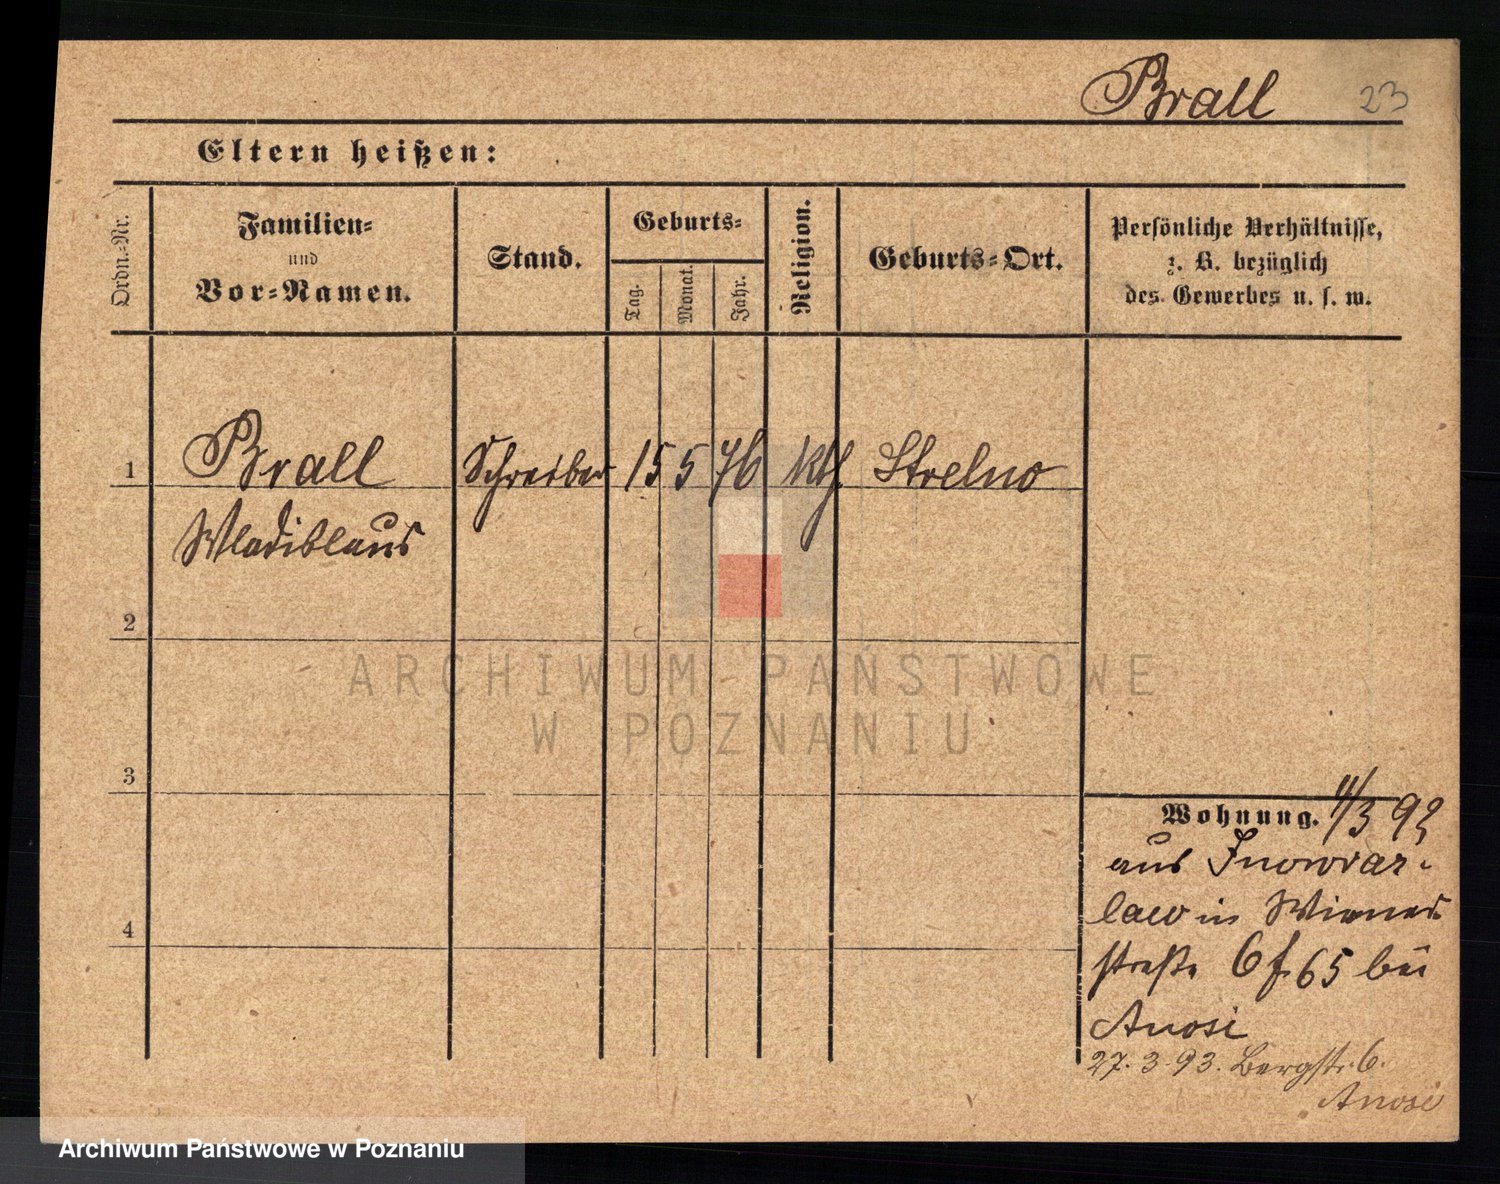 Brall 23
Eltern heißen:
Ordn.-Nr.
Familien-
und
Vor-Namen.
Stand.
Geburts-
Tag.
Monat.
Jahr.
Religion.
Geburts-Ort.
Persönliche Verhältnisse,
z. B. bezüglich
des Gewerbes u. s. w.
1 Brall Schreiber 15 5 76 kth. Strelno
Wladislaus
2
ARCHIWUM PAŃSTWOWE
W POZNANIU
3
Wohnung. 11/3 92
aus Inowraz-
law in Wiener
straße 6 f 65 bei
Anosi
27. 3. 93. Bergstr. 6.
Anosi
4
Archiwum Państwowe w Poznaniu